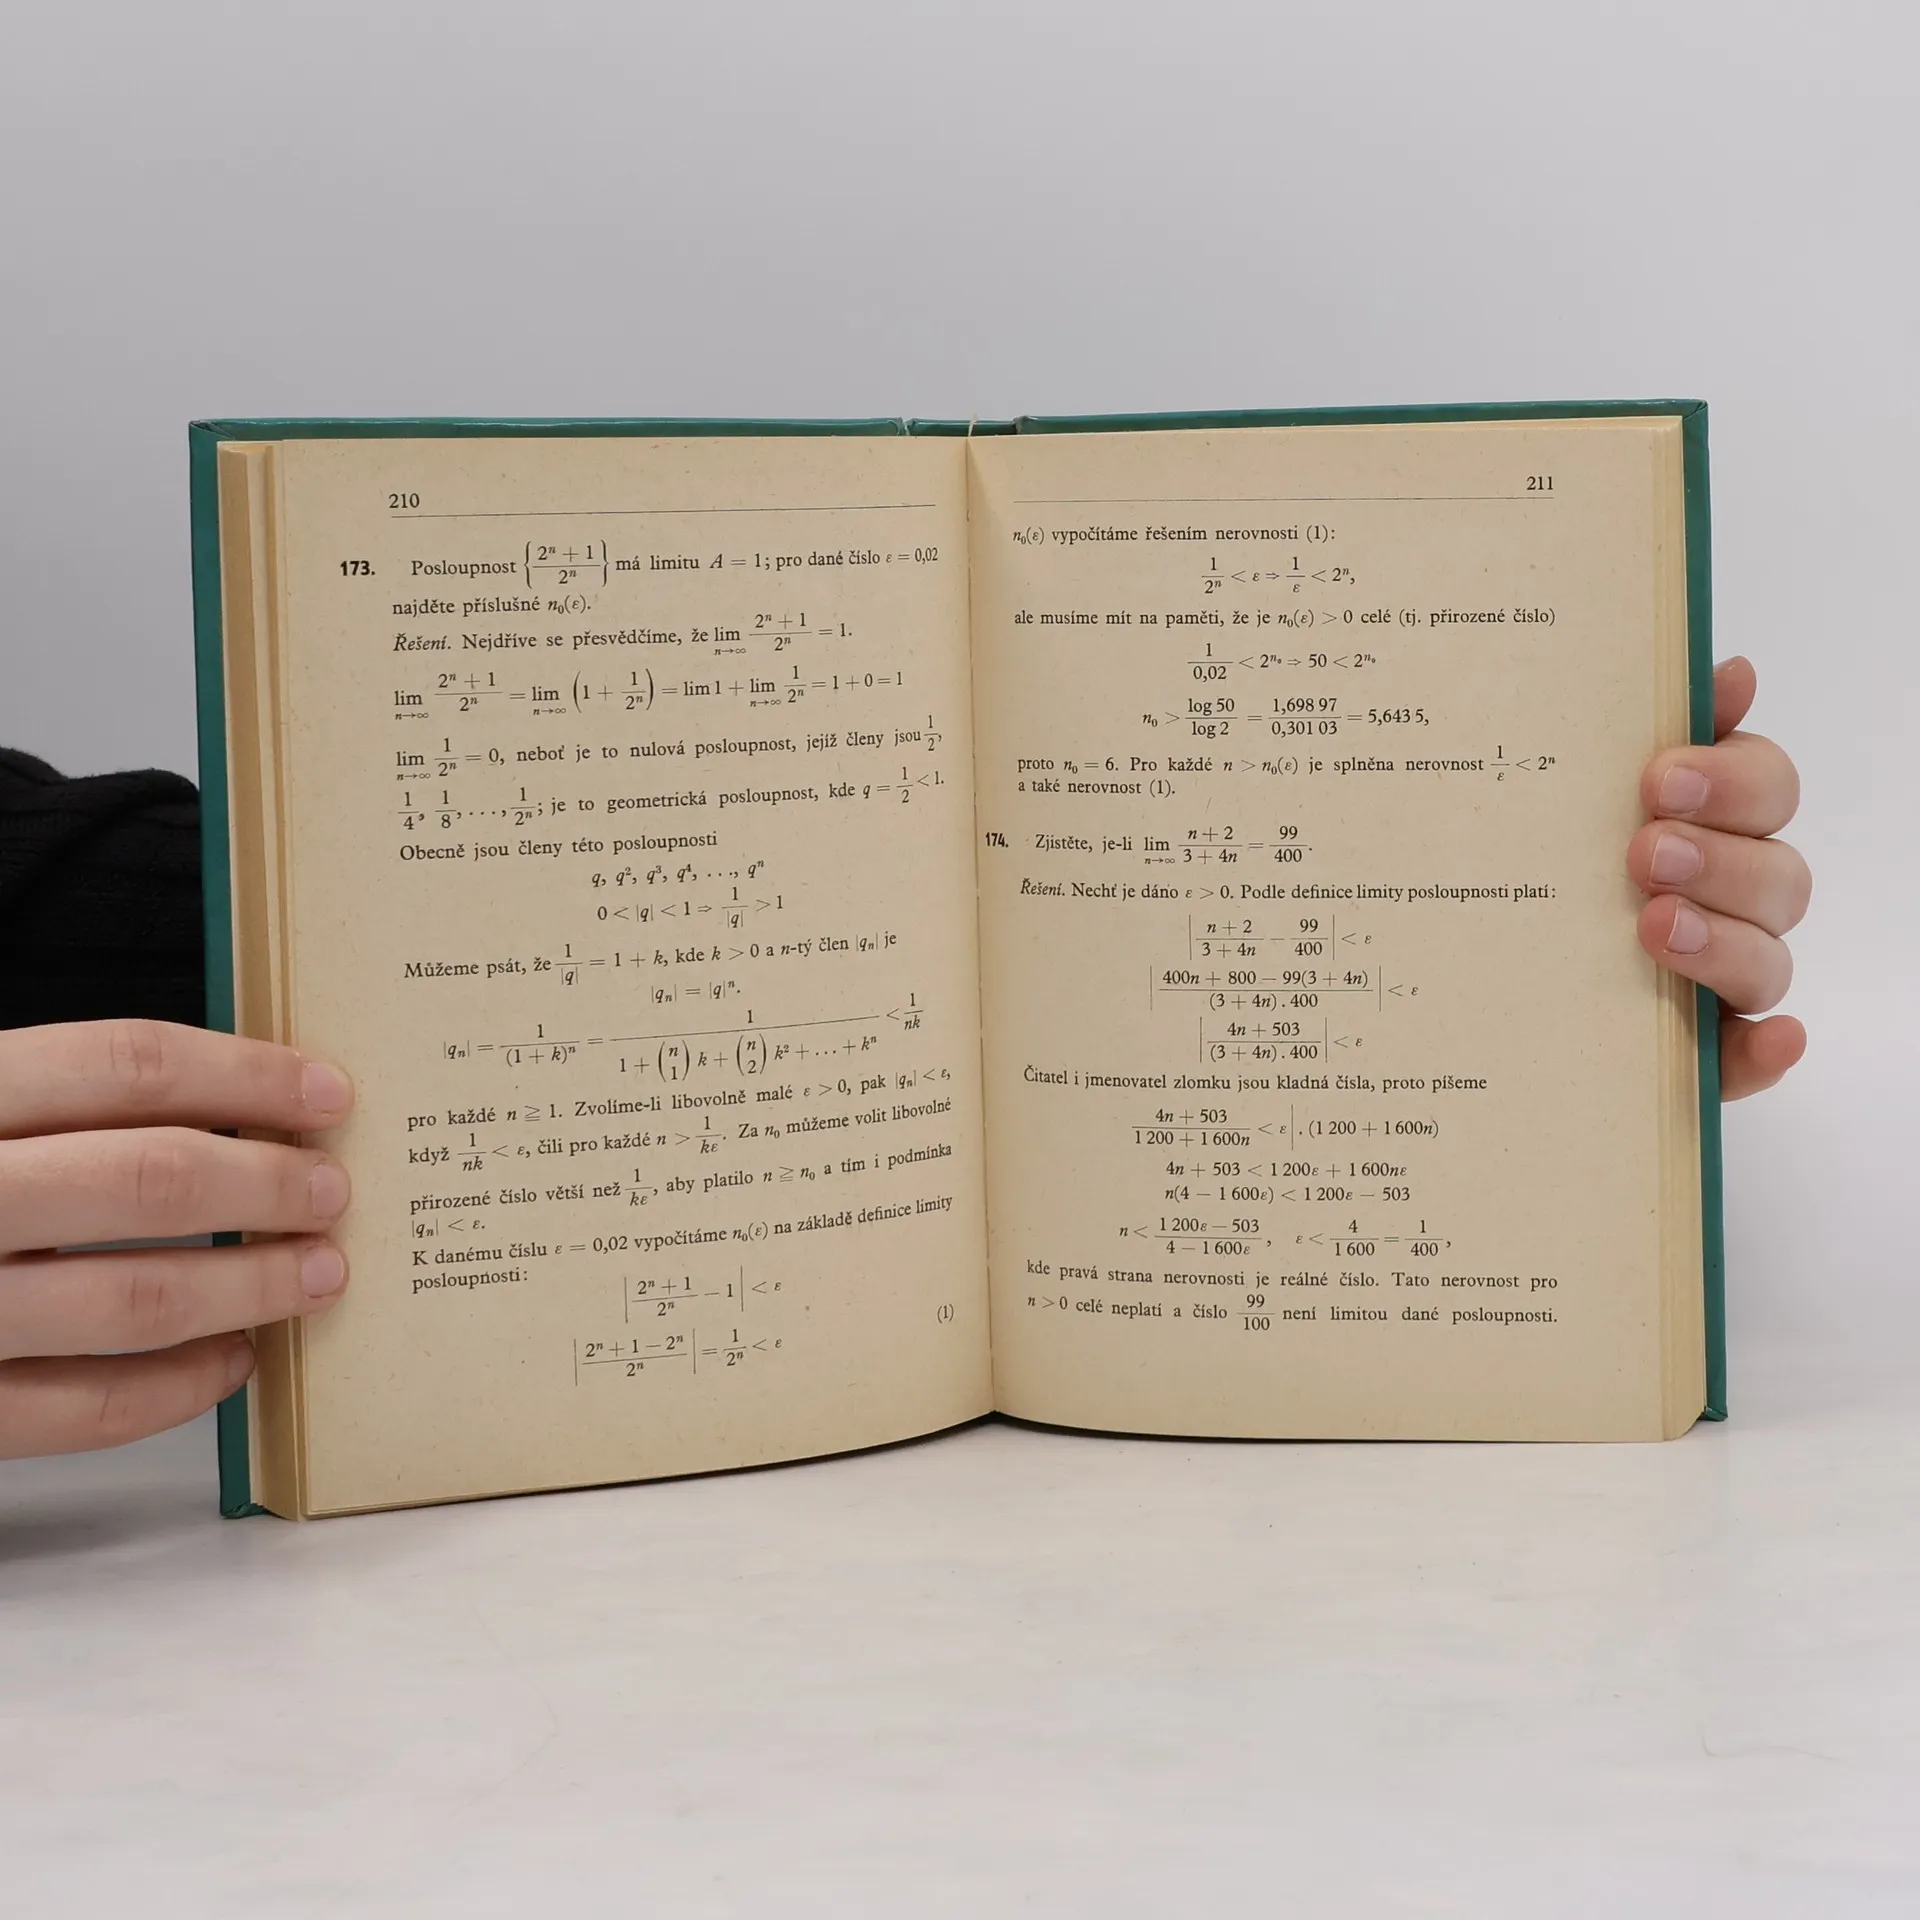 210
173. Posloupnost {(2ⁿ + 1)/2ⁿ} má limitu A = 1; pro dané číslo ε = 0,02
najděte příslušné n₀(ε).
Řešení. Nejdříve se přesvědčíme, že lim n→∞ (2ⁿ + 1)/2ⁿ = 1.
lim n→∞ (2ⁿ + 1)/2ⁿ = lim n→∞ (1 + 1/2ⁿ) = lim 1 + lim n→∞ 1/2ⁿ = 1 + 0 = 1
lim n→∞ 1/2ⁿ = 0, neboť je to nulová posloupnost, jejíž členy jsou 1/2,
1/4, 1/8, . . ., 1/2ⁿ; je to geometrická posloupnost, kde q = 1/2 < 1.
Obecně jsou členy této posloupnosti
q, q², q³, q⁴, . . ., qⁿ
0 < |q| < 1 ⇒ 1/|q| > 1
Můžeme psát, že 1/|q| = 1 + k, kde k > 0 a n-tý člen |qₙ| je
|qₙ| = |q|ⁿ.
|qₙ| = 1/(1 + k)ⁿ = 1/(1 + (n 1) k + (n 2) k² + ... + kⁿ) < 1/nk
pro každé n ≧ 1. Zvolíme-li libovolně malé ε > 0, pak |qₙ| < ε,
když 1/nk < ε, čili pro každé n > 1/kε. Za n₀ můžeme volit libovolné
přirozené číslo větší než 1/kε, aby platilo n ≧ n₀ a tím i podmínka
|qₙ| < ε.
K danému číslu ε = 0,02 vypočítáme n₀(ε) na základě definice limity
posloupnosti:
|(2ⁿ + 1)/2ⁿ − 1| < ε
(1)
|(2ⁿ + 1 − 2ⁿ)/2ⁿ| = 1/2ⁿ < ε
211
n₀(ε) vypočítáme řešením nerovnosti (1):
1/2ⁿ < ε ⇒ 1/ε < 2ⁿ,
ale musíme mít na paměti, že je n₀(ε) > 0 celé (tj. přirozené číslo)
1/0,02 < 2ⁿ⁰ ⇒ 50 < 2ⁿ⁰
n₀ > log 50/log 2 = 1,698 97/0,301 03 = 5,643 5,
proto n₀ = 6. Pro každé n > n₀(ε) je splněna nerovnost 1/ε < 2ⁿ
a také nerovnost (1).
174. Zjistěte, je-li lim n→∞ (n + 2)/(3 + 4n) = 99/400.
Řešení. Nechť je dáno ε > 0. Podle definice limity posloupnosti platí:
|(n + 2)/(3 + 4n) − 99/400| < ε
|(400n + 800 − 99(3 + 4n))/((3 + 4n) . 400)| < ε
|(4n + 503)/((3 + 4n) . 400)| < ε
Čitatel i jmenovatel zlomku jsou kladná čísla, proto píšeme
(4n + 503)/(1 200 + 1 600n) < ε | . (1 200 + 1 600n)
4n + 503 < 1 200ε + 1 600nε
n(4 − 1 600ε) < 1 200ε − 503
n < (1 200ε − 503)/(4 − 1 600ε), ε < 4/1 600 = 1/400,
kde pravá strana nerovnosti je reálné číslo. Tato nerovnost pro
n > 0 celé neplatí a číslo 99/100 není limitou dané posloupnosti.